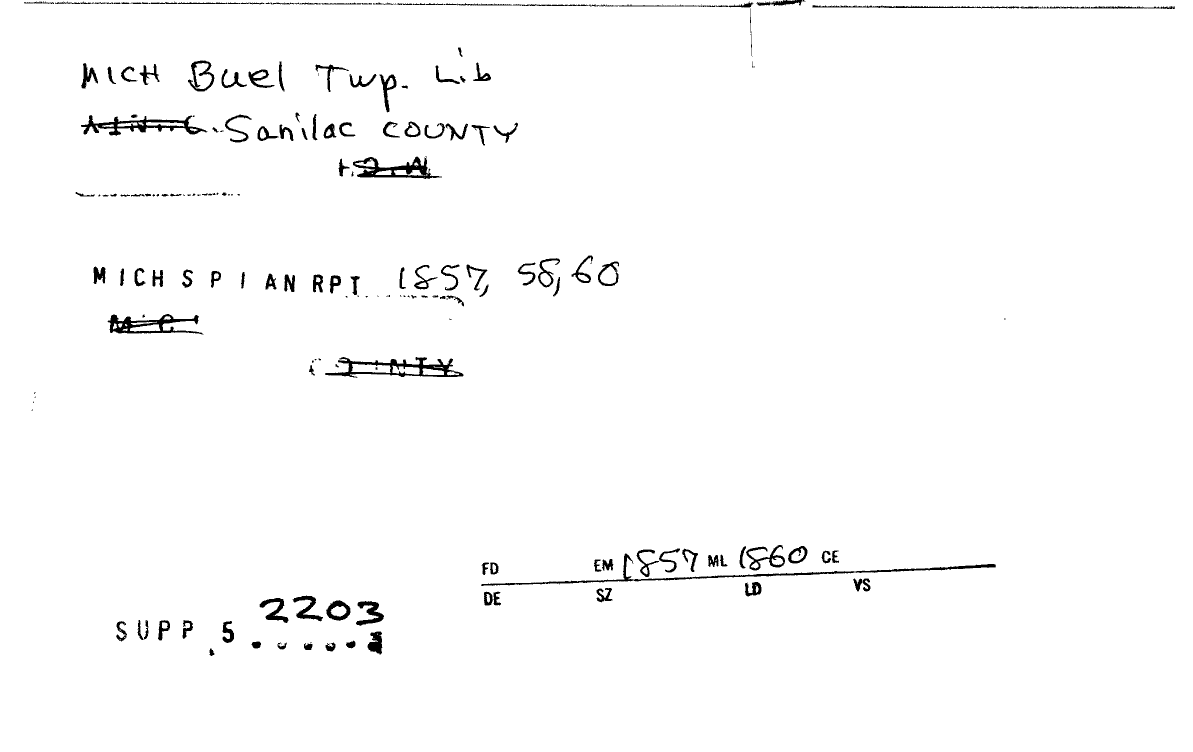 MICH Buel Twp. Lib
Sanilac COUNTY
MICH S P I AN RPT 1857, 58, 60
COUNTY
FD EM 1857 ML 1860 CE
DE SZ LD VS
2203
SUPP 5